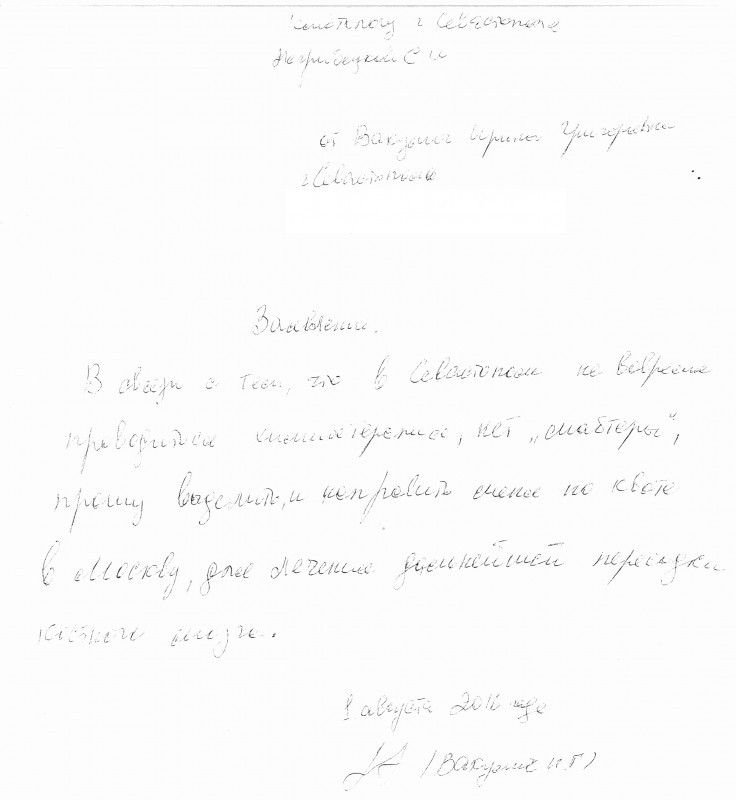 г Севастополя
от Вакулич Ирины Григорьевны
г Севастополь
Заявление.
В связи с тем, что в Севастополе не вовремя
проводится химиотерапия, нет „мабтеры“,
прошу выделить, и направить меня по квоте
в Москву, для лечения дальнейшей пересадки
костного мозга.
августа 2016 года
(Вакулич И.Г)